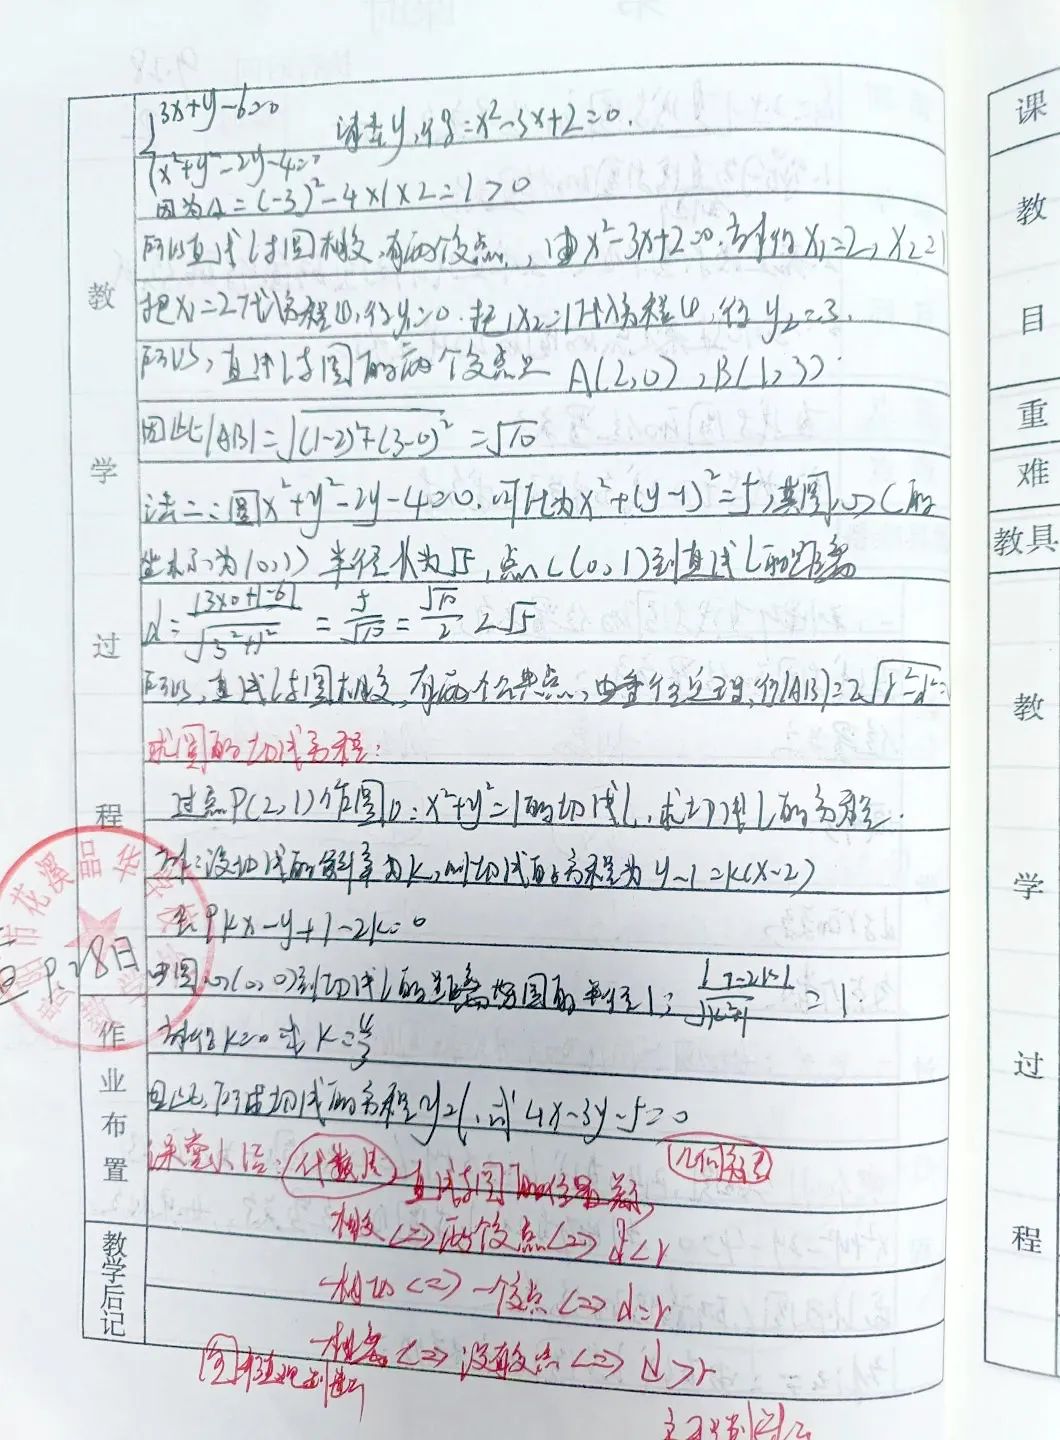 3x+y-6=0
消去y,得:x²-3x+2=0.
x²+y²-2y-4=0
因为Δ=(-3)²-4×1×2=1>0
所以直线l与圆相交,有两个交点,由x²-3x+2=0,解得x₁=2,x₂=1
把x₁=2代入方程①,得y₁=0.把x₂=1代入方程①,得y₂=3.
所以,直线l与圆的两个交点是 A(2,0),B(1,3)
因此|AB|=√(1-2)²+(3-0)²=√10
法二:圆x²+y²-2y-4=0.可化为x²+(y-1)²=5,其圆心C的
坐标为(0,1) 半径长为√5,点C(0,1)到直线l的距离
d=|3×0+1-6|/√3²+1²=5/√10=√10/2<√5
所以,直线l与圆相交,有两个公共点,由垂径定理,得|AB|=2√r²-d²=
求圆的切线方程:
过点P(2,1)作圆O:x²+y²=1的切线l,求切线l的方程.
解:设切线的斜率为k,则切线的方程为y-1=k(x-2)
即kx-y+1-2k=0
由圆心(0,0)到切线l的距离等于圆的半径1: |1-2k|/√k²+1=1.
解得k=0或k=4/3
因此,所求切线的方程y=1,或4x-3y-5=0
课堂小结:代数法 直线与圆的位置关系 几何
相交<=>两个交点<=>d<r
相切<=>一个交点<=>d=r
相离<=>没有交点<=>d>r
教
学
过
程
作
业
布
置
教
学
后
记
9.28日
花溪品华
课
教
目
重
难
教具
教
学
过
程